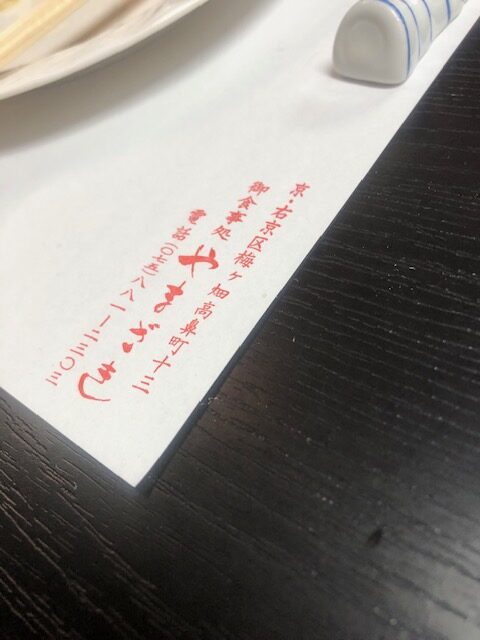 京・右京区梅ヶ畑高鼻町十三
御食事処 やまざき
電話(〇七五)八八一ー二三〇三